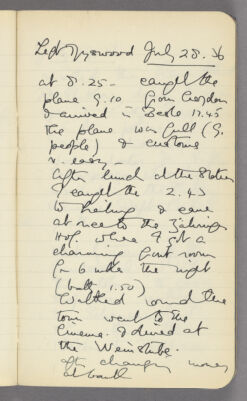 Left Nyrwood July 28. 36
at 8.25 — caught the
plane 9.10 from Croydon
& arrived in Basle 12.45
the plane was full (9.
people) & customs
v. easy —
After lunch at the station
I caught the 2.43
to Freiburg & came
at once to the Zähringer
Hof. where I got a
charming front room
for 6 marks the night
(bath 1.50)
Walked round the
town went to the
Cinema. & dined at
the Weinstube.
after changing money
at bank